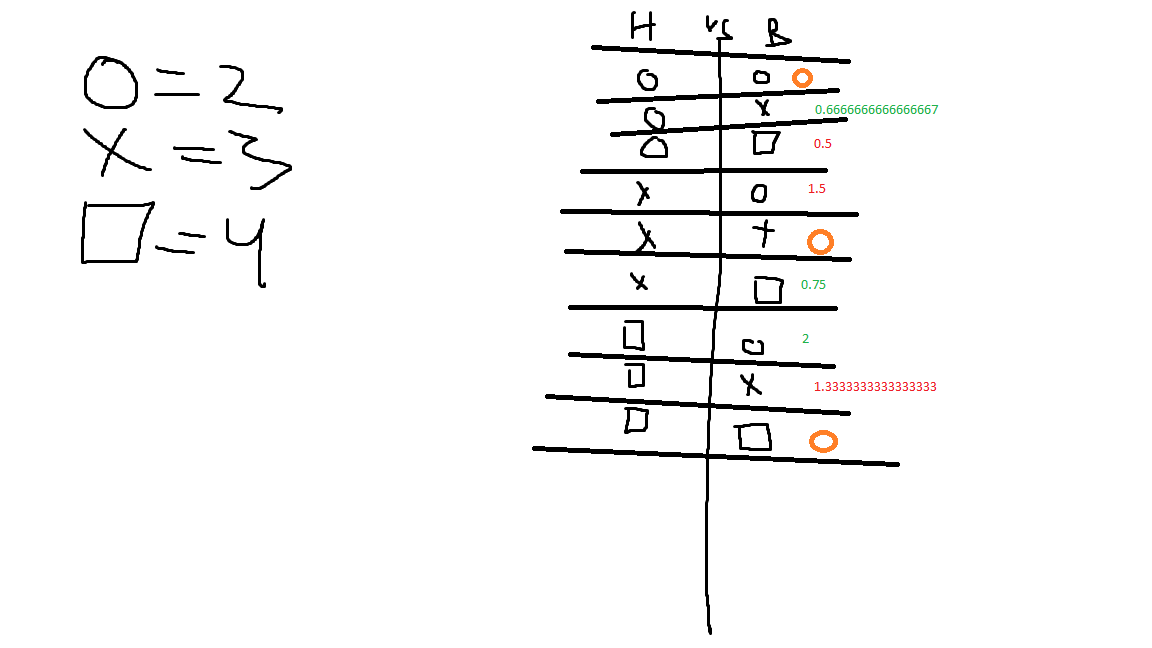 O = 2
X = 3
□ = 4
H vs B
O O O
O X 0.6666666666666667
O □ 0.5
X O 1.5
X + O
X □ 0.75
□ O 2
□ X 1.3333333333333333
□ □ O